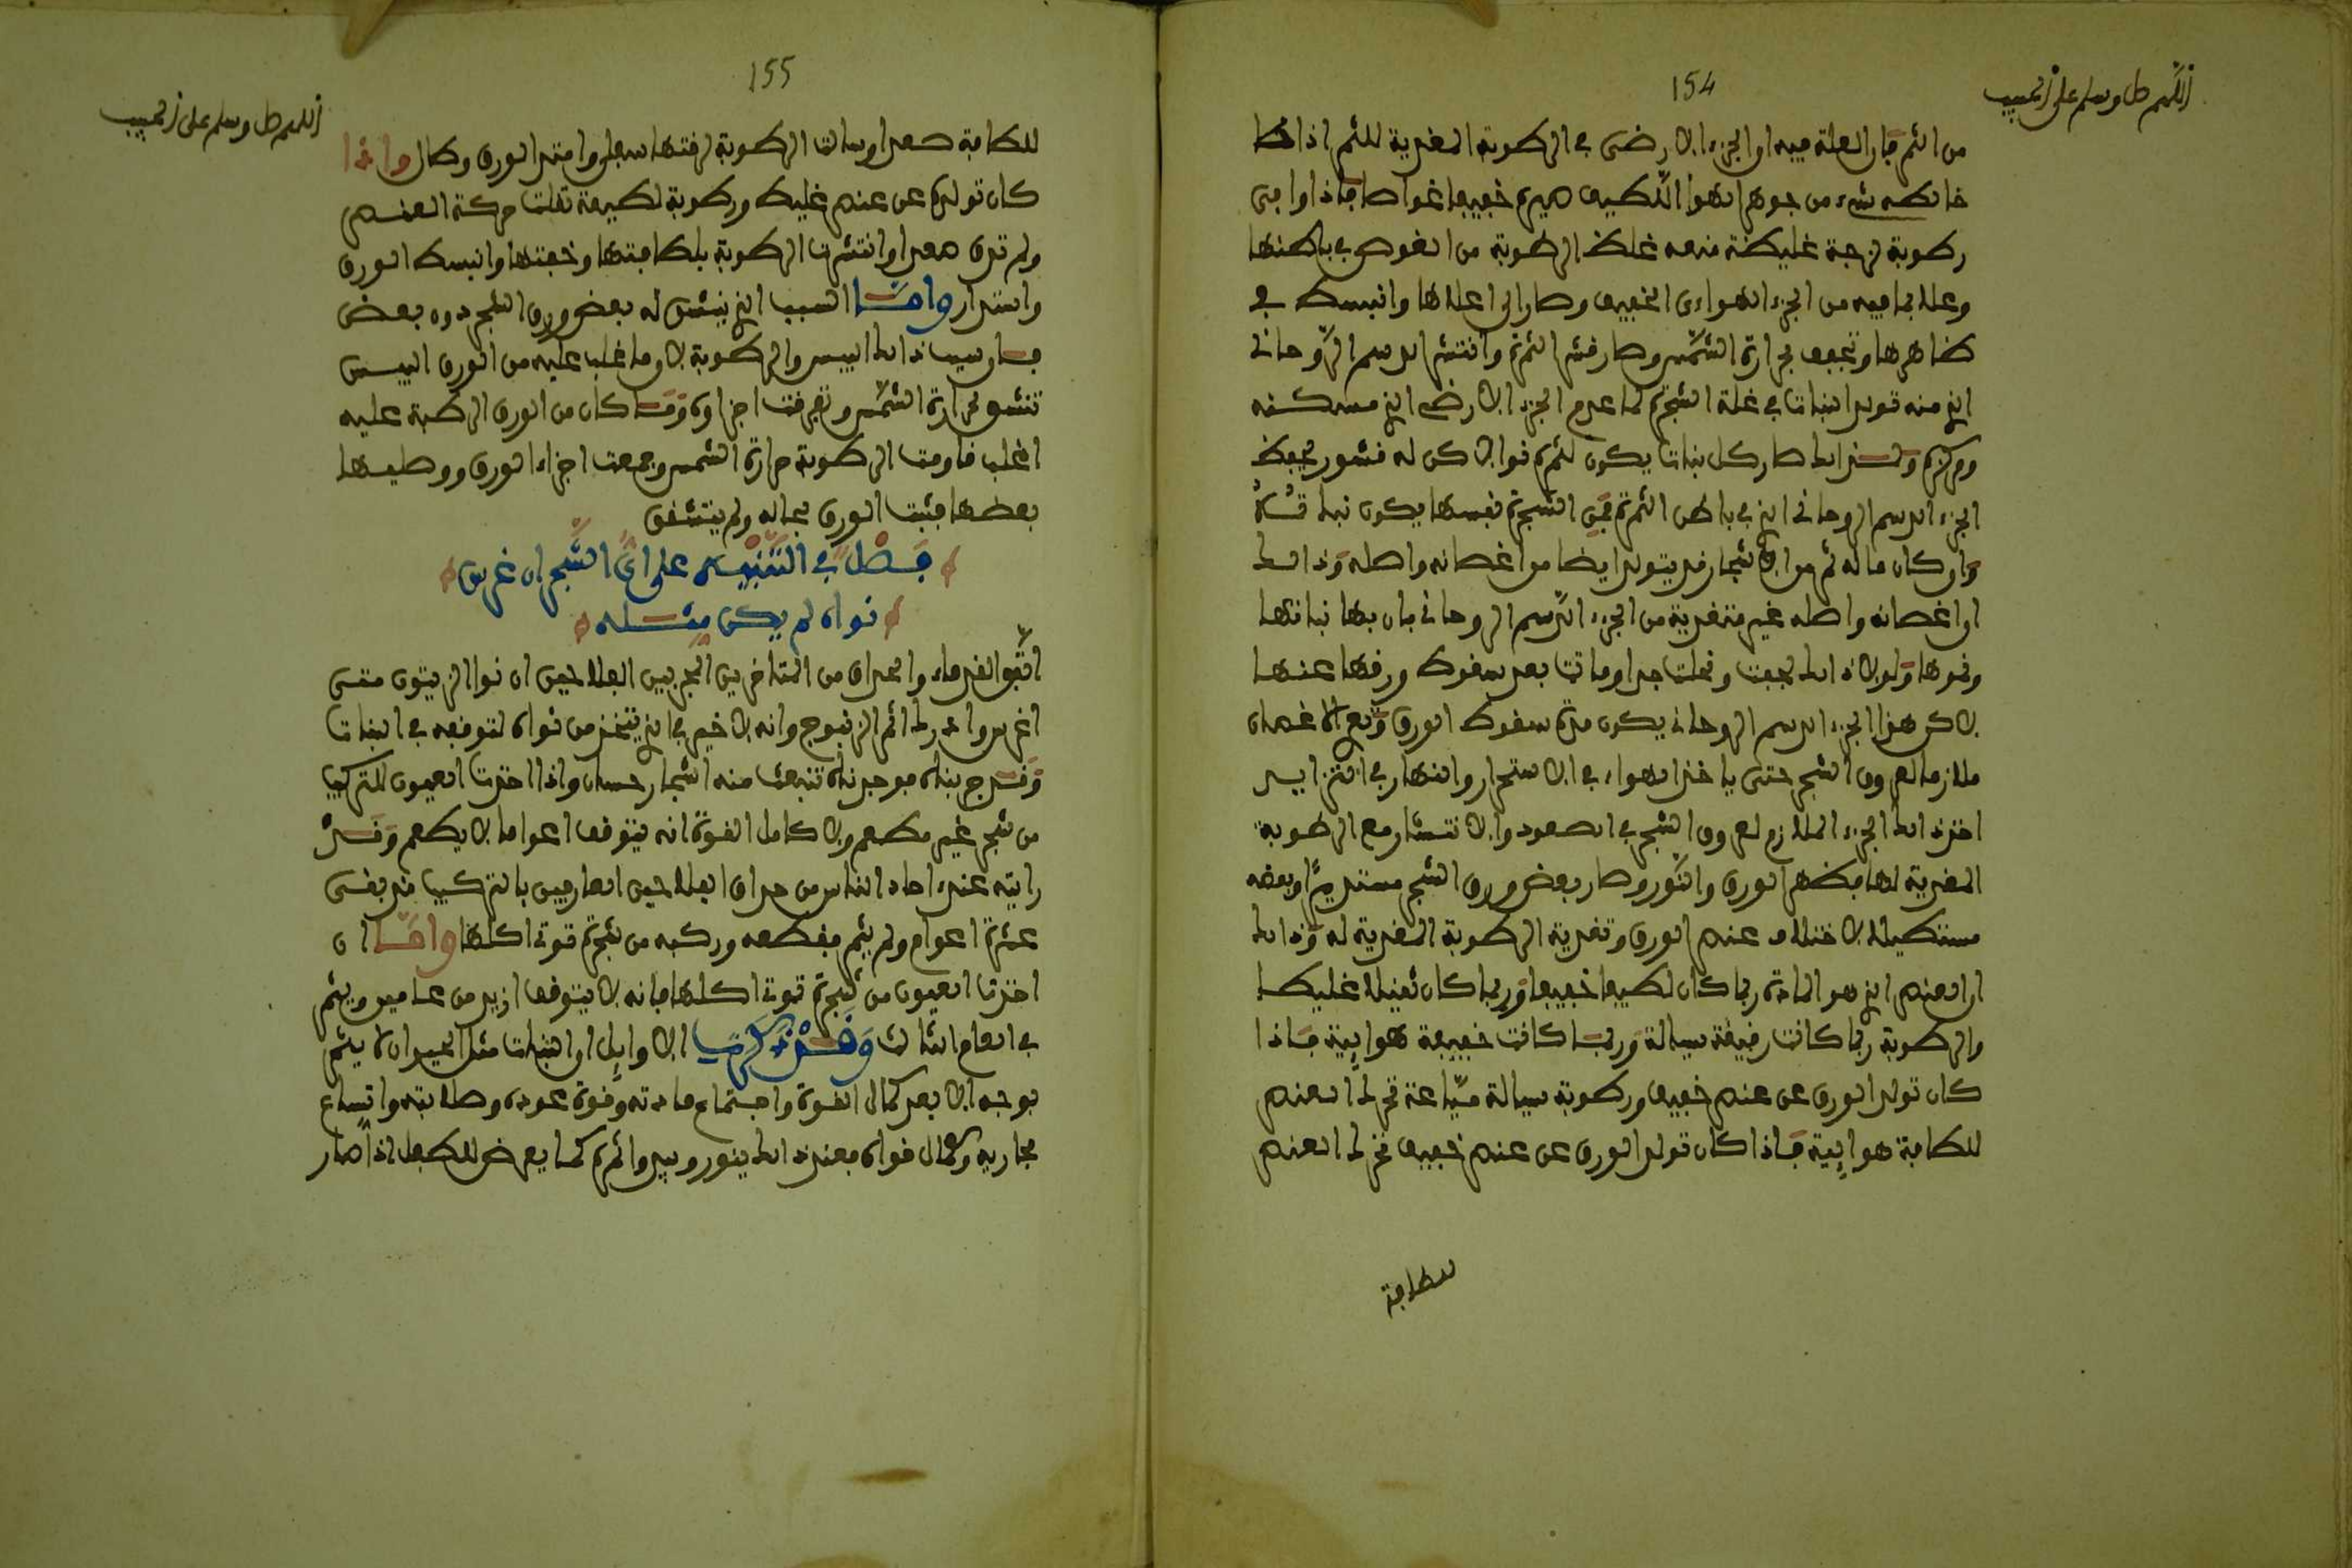 154
اللهم صل وسلم على الحبيب
من الثمر فان العلة فيه ان الجزء الارضى في الرطوبة المغذية للثمر اذا خا
خالطه شىء من جوهر الهواء اللطيف صيره خفيفا غواصا فاذا وافى
رطوبة لزجة غليظة منعه غلظ الرطوبة من الغوص في باطنها
وعلا بما فيه من الجزء الهواءى الخفيف وصار الى اعلاها وانبسط في
ظاهرها وتجفف بحرارة الشمس وصار قشر الثمرة وانتشر الدسم الروحانى
الذى منه تولد النبات في غلة الشجرة لما عدم الجزء الارضى الذى مسكنه
ومركزه ولذالك صار كل نبات يكون لثمره نوا لاكن له قشور يحفظ
الجزء الدسم الروحانى الذى في باطن الثمرة فمن الشجرة نفسها يكون نباته
وان كان ماله ثمر من الاشجار قد يتولد ايضا من اغصانه واصله وذالك
ان اغصانه واصله غير متغذية من الجزء الدسم الروحانى بان بها نباتها
ونموها ولولا ذالك لجفت وفحلت جدا وماتت بعد سقوط ورقها عنها
لاكن هذا الجزء الدسم الروحانى يكون مدة سقوط الورق وتعرى الاغصان
ملازما لعروق الشجر حتى ياخذ الهواء في الاستحرار والنهار في التزايد
اخذ ذالك الجزء الملازم لعروق الشجر في الصعود والانتشار مع الرطوبة
المغذية لها فيظهر الورق والنور وصار بعض ورق الشجر مستديرا وبعضه
مستطيلا لاختلاف عنصر الورق وتغذية الرطوبة المغذية له وذالك
ان العنصر الذى هو المادة ربما كان لطيفا خفيفا وربما كان ثقيلا غليظا
والرطوبة ربما كانت رقيقة سيالة وربما كانت خفيفة هوايية فاذا
كان تولد الورق عن عنصر خفيف ورطوبة سيالة مياعة تحرك العنصر
للطافة هوايية فاذا كان تولد الورق عن عنصر خفيف تحرك العنصر
للطافة
155
اللهم صل وسلم على الحبيب
للطافة صعدا وسالت الرطوبة لرقتها سفلا وامتد الورق وطال واذا
كان تولده عن عنصر غليظ ورطوبة لطيفة ثقلت حركة العنصر
ولم ترق صعدا وانتشرت الرطوبة بلطافتها وخفتها وانبسط الورق
واستدار واما السبب الذى ينشق له بعض ورق الشجر دون بعض
فان سبب ذالك اليبس والرطوبة لان ما غلب عليه من الورق اليبس
تنشفه حرارة الشمس وتفرقت اجزاوه وما كان من الورق الرطبة عليه
اغلب قاومت الرطوبة حرارة الشمس وجمعت اجزاء الورق ووصلت
بعضها فثبت الورق بحاله ولم يتشقق
فصل في التنبيه على اى الشجر ان غرس
نواه لم يكن مثله
اتفق القدماء والحذاق من المتاخرين المجربين الفلاحين ان نوا الزيتون متى
اغرس وادرك اثمر الزنبوج وانه لا خير في الذى يتخذ من نواه لتوقفه في النبات
وقد جربناه فوجدناه تنبعث منه اشجار حسان واذا اخذت العيون للتركيب
من شجر غير مطعم ولا كامل القوة انه يتوقف اعواما لا يطعم وقد
رايته عند احاد الناس من حذاق الفلاحين العارفين بالتركيب قد بقى
عشرة اعوام ولم يثمر فقطعه وركبه من شجرة قوى اكلها واما ان
اخذت العيون من شجرة قوى اكلها فانه لا يتوقف ازيد من عامين ويثمر
في العام الثالث وقد ذكرت الاوايل ان النبات مثل الحيوان لا يثمر
بوجه الا بعد كمال القوة واجتماع مادته وقوة عوده وصلابته واتساع
مجاريه وكمال قواه فعند ذالك ينور ويبدو اثمره كما يعرض للطفل اذا صار